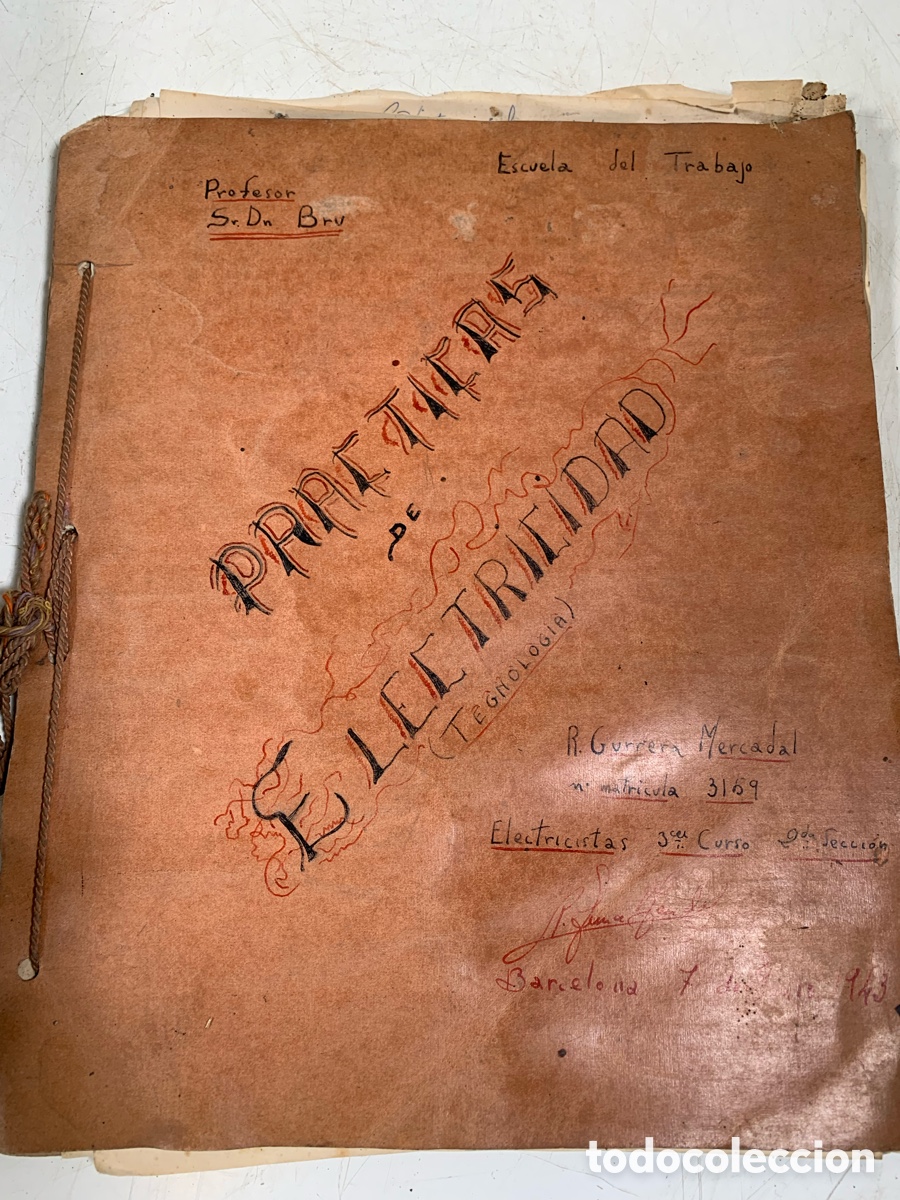 Escuela del Trabajo
Profesor
Sr. Dn Bru
PRACTICAS
DE
ELECTRICIDAD
(TEGNOLOGIA)
R. Gurrera Mercadal
n. matricula 3169
Electricistas 3cer Curso 2da Sección
Barcelona 7 de 943
todocoleccion